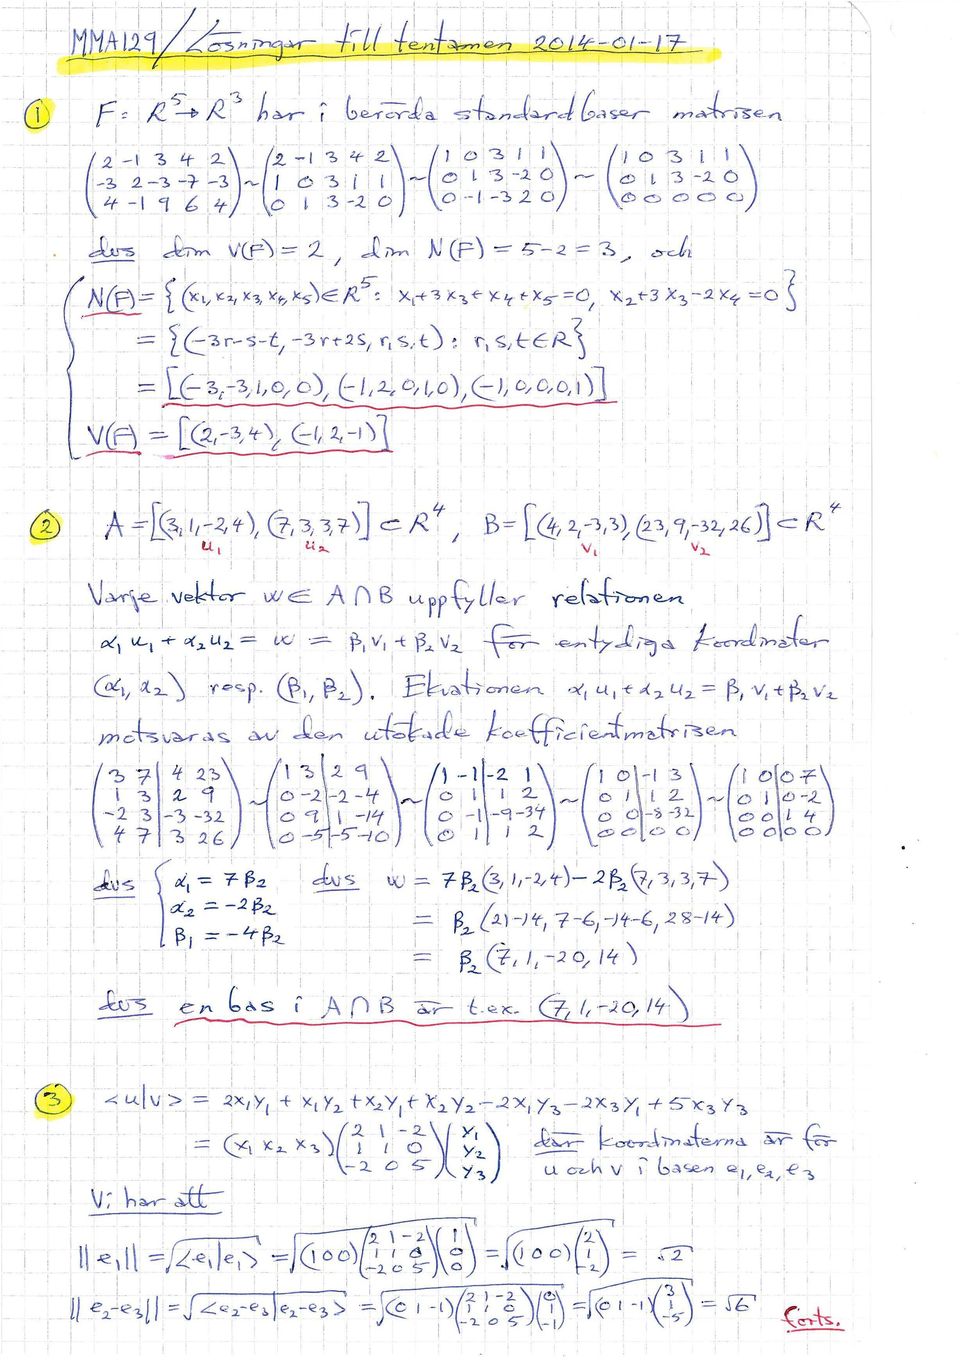 MMA129/Lösningar till tentamen 2014-01-17
① F: R⁵→R³ har i berörda standardbaser matrisen
(2 -1 3 4 2; -3 2 -3 -7 -3; 4 -1 9 6 4) ~ (2 -1 3 4 2; 1 0 3 1 1; 0 1 3 -2 0) ~ (1 0 3 1 1; 0 1 3 -2 0; 0 -1 -3 2 0) ~ (1 0 3 1 1; 0 1 3 -2 0; 0 0 0 0 0)
dvs dim V(F) = 2, dim N(F) = 5-2 = 3, och
N(F) = {(x₁, x₂, x₃, x₄, x₅) ∈ R⁵: x₁+3x₃+x₄+x₅=0, x₂+3x₃-2x₄=0}
= {(-3r-s-t, -3r+2s, r, s, t): r, s, t ∈ R}
= [(-3,-3,1,0,0), (-1,2,0,1,0), (-1,0,0,0,1)]
V(F) = [(2,-3,4), (-1,2,-1)]
② A = [(3,1,-2,4), (7,3,3,7)] ⊂ R⁴, B = [(4,2,-3,3), (23,9,-32,26)] ⊂ R⁴
u₁ u₂ v₁ v₂
Varje vektor w ∈ A∩B uppfyller relationen
α₁u₁ + α₂u₂ = w = β₁v₁ + β₂v₂ för entydiga koordinater
(α₁, α₂) resp. (β₁, β₂). Ekvationen α₁u₁ + α₂u₂ = β₁v₁ + β₂v₂
motsvaras av den utökade koefficientmatrisen
(3 7 | 4 23; 1 3 | 2 9; -2 3 | -3 -32; 4 7 | 3 26) ~ (1 3 | 2 9; 0 -2 | -2 -4; 0 9 | 1 -14; 0 -5 | -5 -10) ~ (1 -1 | -2 1; 0 1 | 1 2; 0 -1 | -9 -34; 0 1 | 1 2) ~ (1 0 | -1 3; 0 1 | 1 2; 0 0 | -8 -32; 0 0 | 0 0) ~ (1 0 | 0 7; 0 1 | 0 -2; 0 0 | 1 4; 0 0 | 0 0)
dvs { α₁ = 7β₂ dvs w = 7β₂(3,1,-2,4) - 2β₂(7,3,3,7)
α₂ = -2β₂ = β₂(21-14, 7-6, -14-6, 28-14)
β₁ = -4β₂ = β₂(7,1,-20,14)
dvs en bas i A∩B är t.ex. (7,1,-20,14)
③ <u|v> = 2x₁y₁ + x₁y₂ + x₂y₁ + x₂y₂ - 2x₁y₃ - 2x₃y₁ + 5x₃y₃
= (x₁ x₂ x₃)(2 1 -2; 1 1 0; -2 0 5)(y₁; y₂; y₃) där koordinaterna är för
u och v i basen e₁, e₂, e₃
Vi har att
||e₁|| = √<e₁|e₁> = √(1 0 0)(2 1 -2; 1 1 0; -2 0 5)(1; 0; 0) = √(1 0 0)(2; 1; -2) = √2
||e₂-e₃|| = √<e₂-e₃|e₂-e₃> = √(0 1 -1)(2 1 -2; 1 1 0; -2 0 5)(0; 1; -1) = √(0 1 -1)(3; 1; -5) = √6
forts.